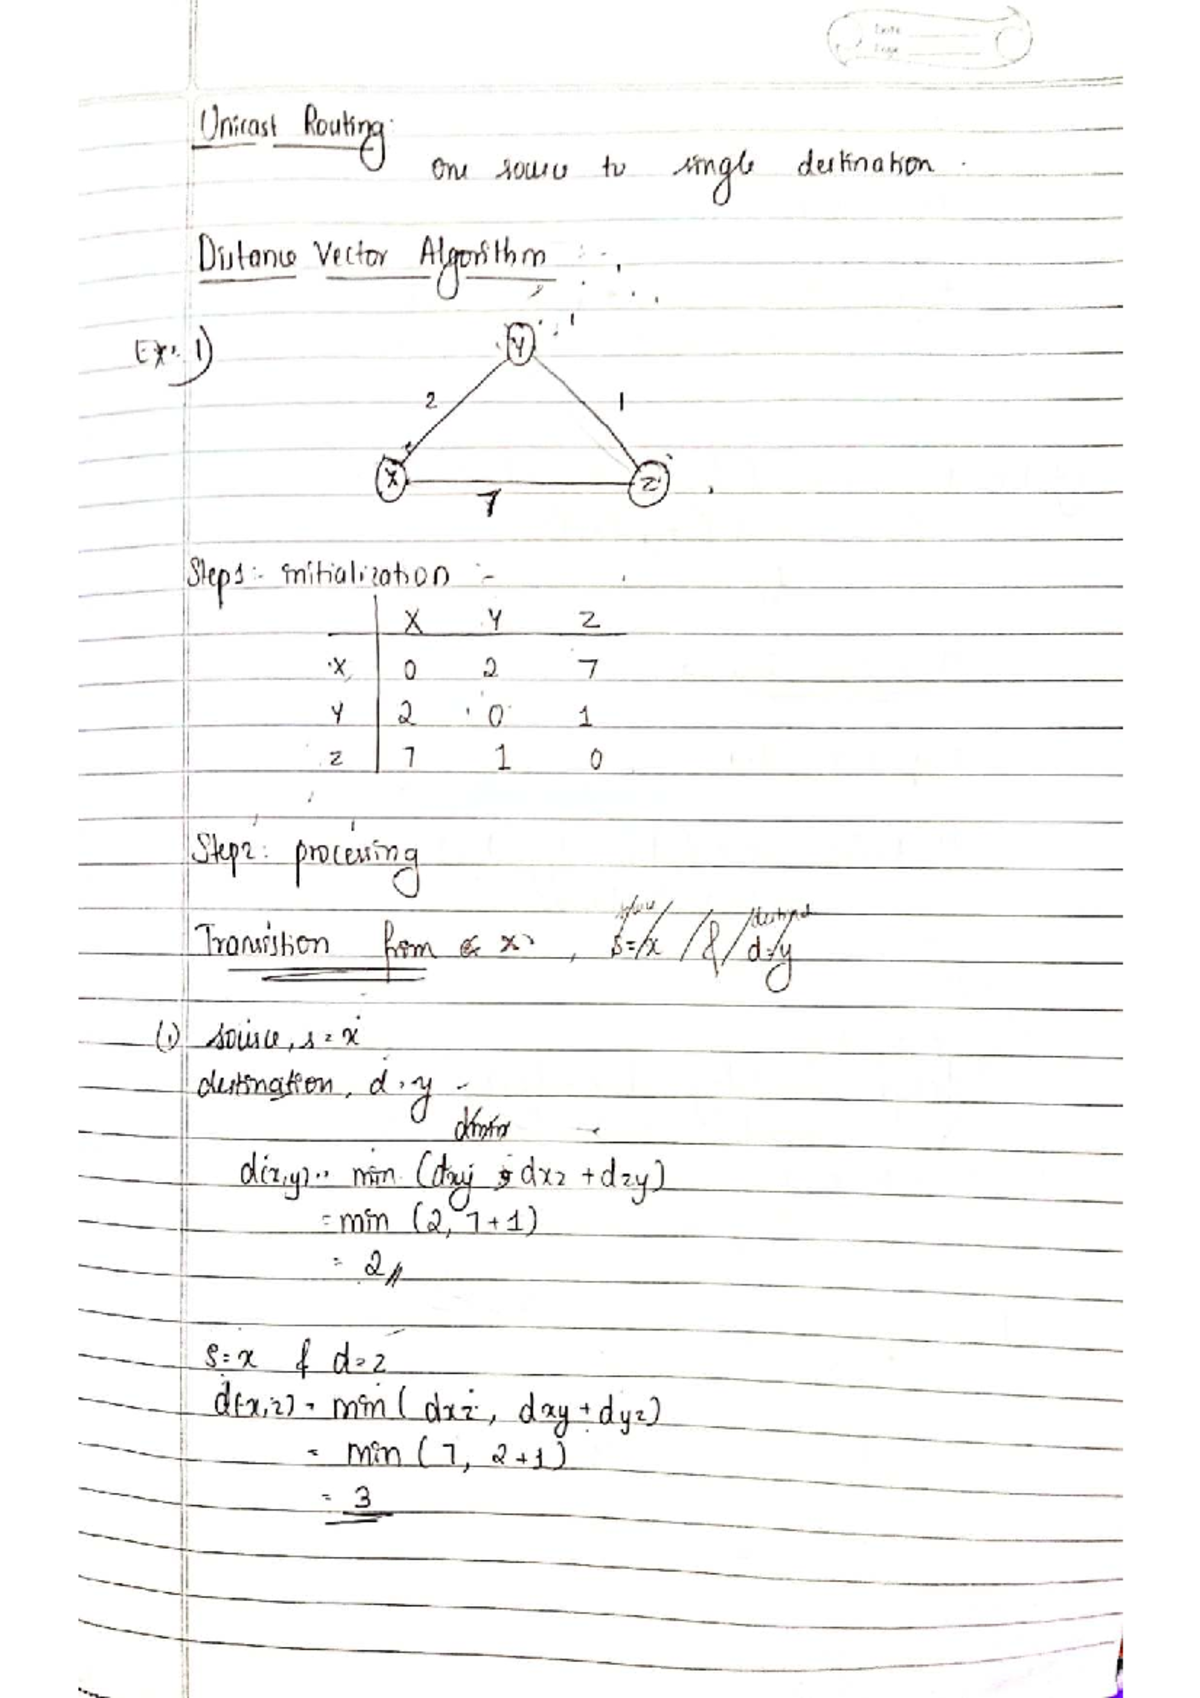 Date
Page
Unicast Routing:
one source to single destination.
Distance Vector Algorithm
Ex: 1)
Y
2 1
X Z
7
Step1:- initialization :-
X Y Z
X 0 2 7
Y 2 0 1
Z 7 1 0
Step2: processing
Transistion from x, s=x & d=y
(i) source, s = x
destination, d = y
d(x,y) = min (dxy, dxz + dzy)
= min (2, 7+1)
= 2
s=x & d=z
d(x,z) = min ( dxz, dxy + dyz)
= min (7, 2+1)
= 3